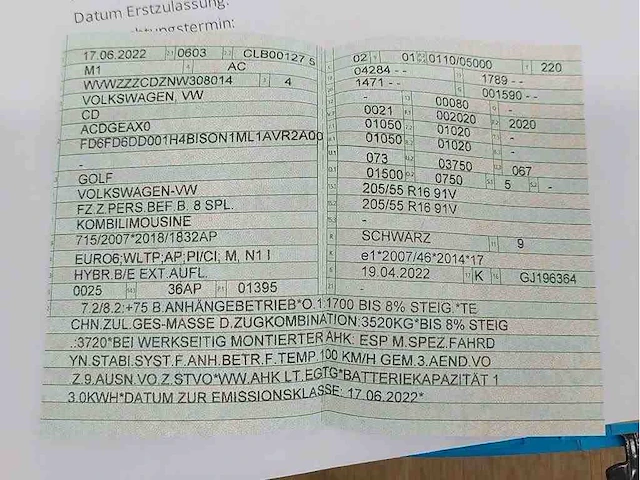 Datum Erstzulassung:
17.06.2022 0603 CLB00127 5
M1 AC
WVWZZZCDZNW308014 4
VOLKSWAGEN, VW
CD
ACDGEAX0
FD6FD6DD001H4BISON1ML1AVR2A00
-
GOLF
VOLKSWAGEN-VW
FZ.Z.PERS.BEF.B. 8 SPL.
KOMBILIMOUSINE
715/2007*2018/1832AP
EURO6;WLTP;AP;PI/CI; M, N1 I
HYBR.B/E EXT.AUFL.
0025 36AP 01395
02 01 0110/05000 220
04284 - - 1789 - -
1471 - - 001590 - -
- 00080 -
0021 002020 2020
01050 01020 -
01050 01020 -
- 01020
073 03750 067
01500 0750 5 -
205/55 R16 91V
205/55 R16 91V
-
SCHWARZ 9
e1*2007/46*2014*17
19.04.2022 K GJ196364
-
7.2/8.2:+75 B.ANHÄNGEBETRIEB*O.1:1700 BIS 8% STEIG.*TE
CHN.ZUL.GES-MASSE D.ZUGKOMBINATION:3520KG*BIS 8% STEIG
.:3720*BEI WERKSEITIG MONTIERTER AHK: ESP M.SPEZ.FAHRD
YN.STABI.SYST.F.ANH.BETR.F.TEMP.100 KM/H GEM.3.AEND.VO
Z.9.AUSN.VO.Z.STVO*WW.AHK LT.EGTG*BATTERIEKAPAZITÄT 1
3.0KWH*DATUM ZUR EMISSIONSKLASSE: 17.06.2022*